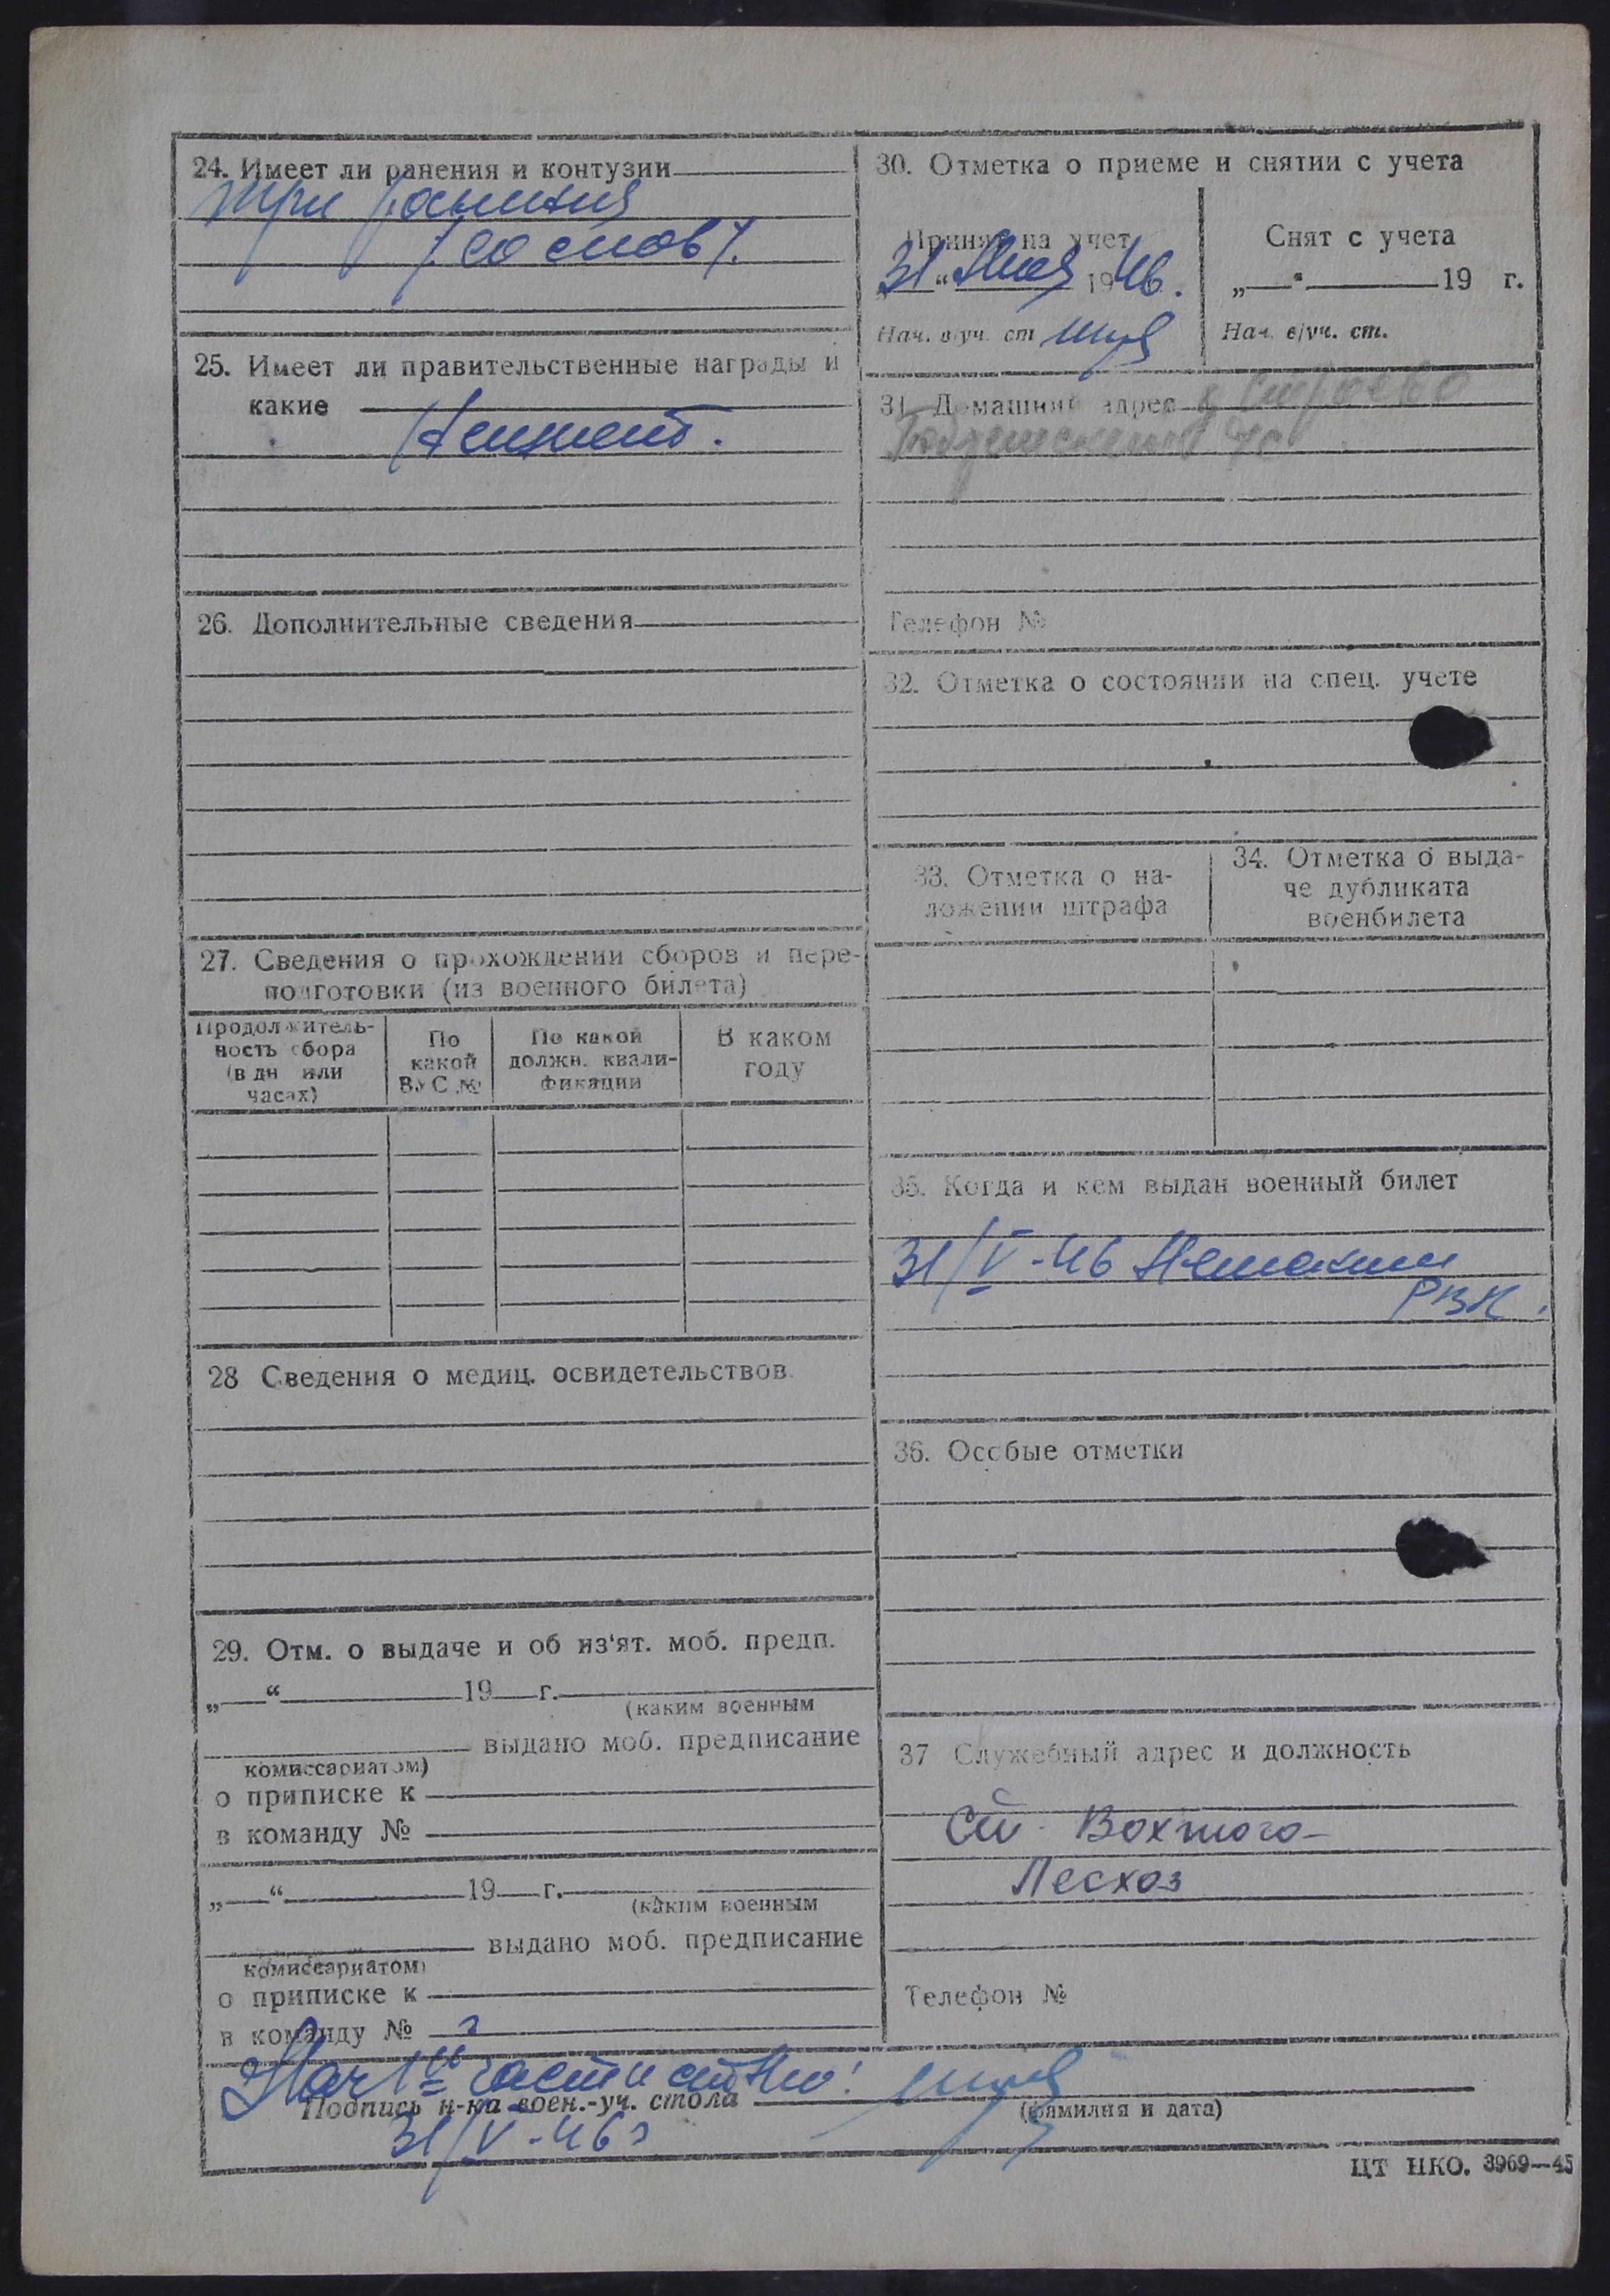 24. Имеет ли ранения и контузии
три ранения
/со слов/.
25. Имеет ли правительственные награды и
какие
26. Дополнительные сведения
27. Сведения о прохождении сборов и пере-
подготовки (из военного билета)
Продолжитель-
ность сбора
(в дн или
часах)
По
какой
ВУС №
По какой
должн. квали-
фикации
В каком
году
28 Сведения о медиц. освидетельствов.
29. Отм. о выдаче и об из'ят. моб. предп.
„ “ 19 г.
(каким военным
выдано моб. предписание
комиссариатом)
о приписке к
в команду №
„ “ 19 г.
(каким военным
выдано моб. предписание
комиссариатом)
о приписке к
в команду №
30. Отметка о приеме и снятии с учета
Принят на учет
31 “ мая 1946.
Нач. в/уч. ст
Снят с учета
„ “ 19 г.
Нач. в/уч. ст.
31. Домашний адрес
Телефон №
32. Отметка о состоянии на спец. учете
33. Отметка о на-
ложении штрафа
34. Отметка о выда-
че дубликата
военбилета
35. Когда и кем выдан военный билет
31/V-46
РВК.
36. Особые отметки
37 Служебный адрес и должность
Ст. Вохтога-
Лесхоз
Телефон №
Нач 1ой части
Подпись н-ка воен.-уч. стола
(фамилия и дата)
31/V-46г
ЦТ НКО. 3969—45